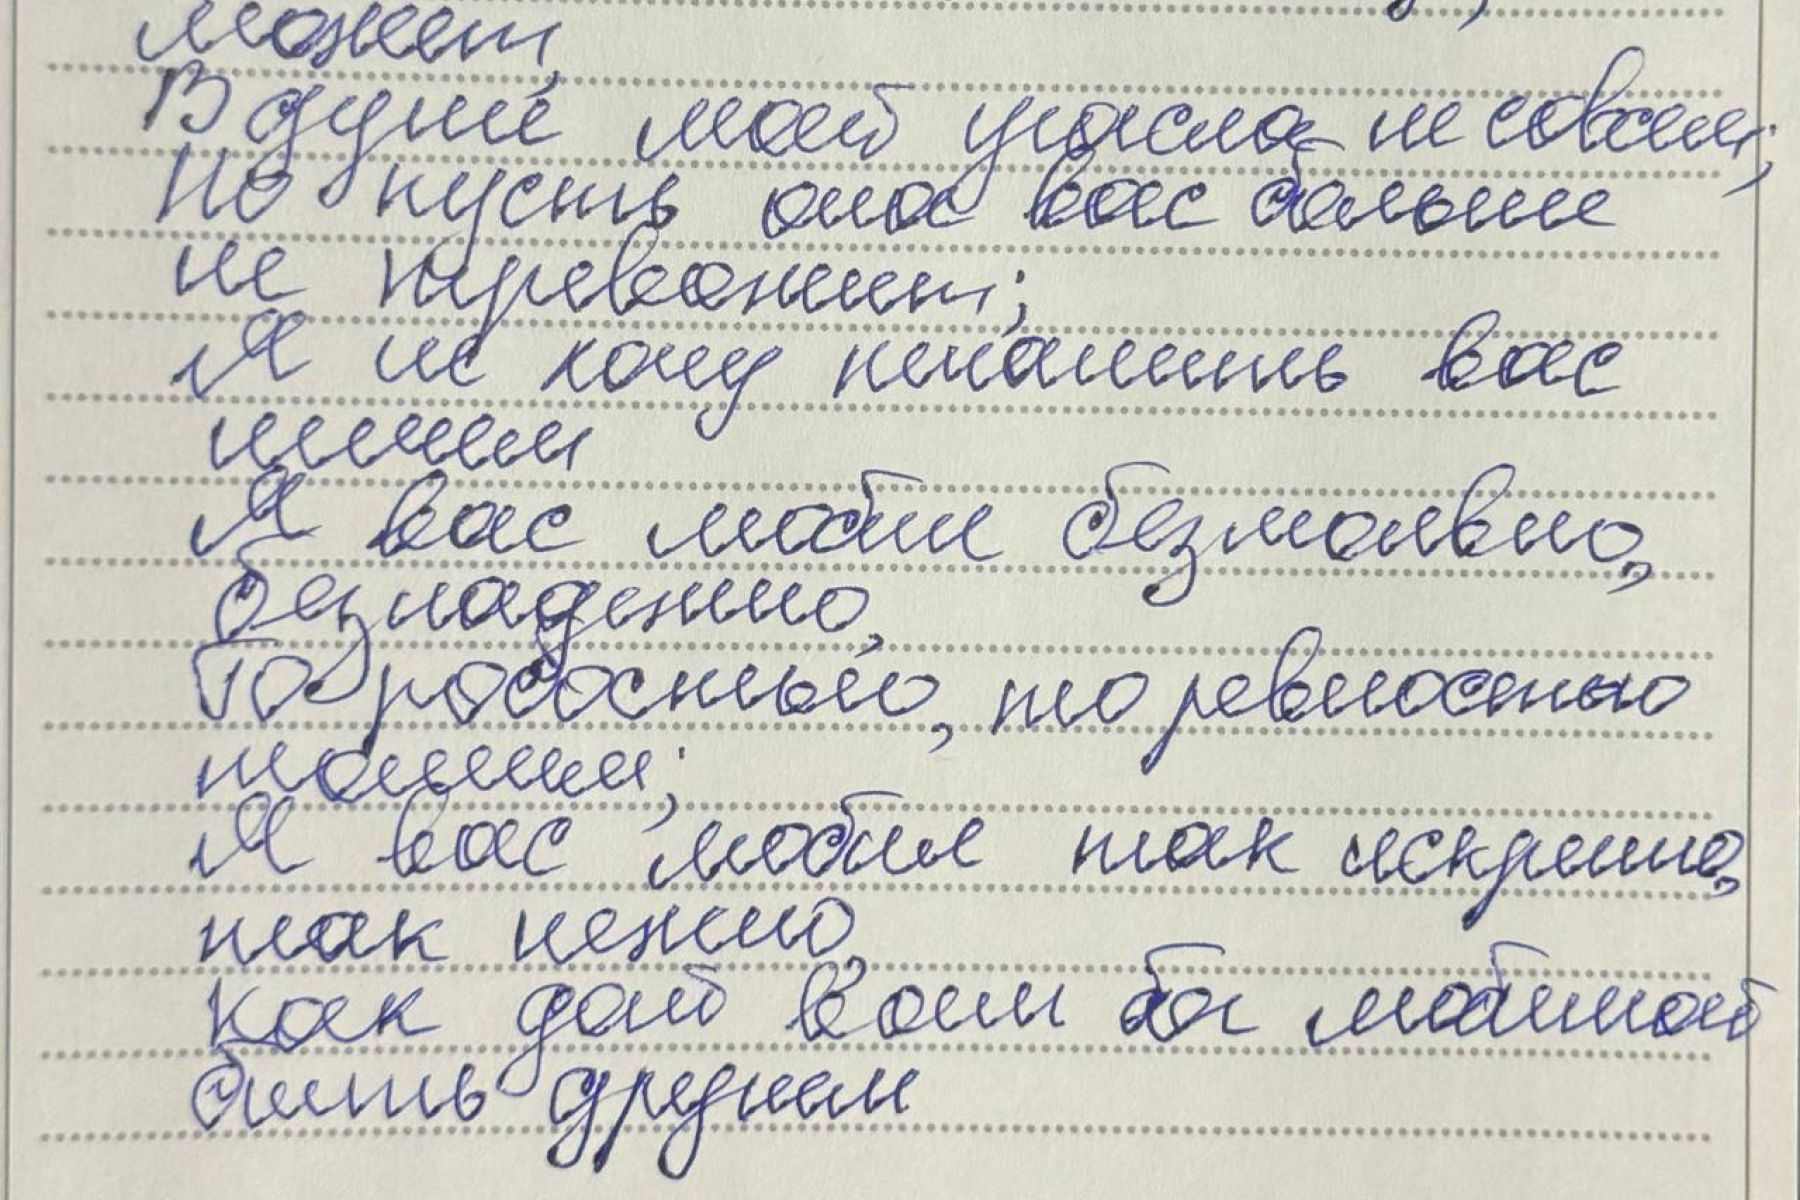 может,
В душе моей угасла не совсем;
Но пусть она вас больше
не тревожит;
Я не хочу печалить вас
ничем
Я вас любил безмолвно,
безнадежно,
То робостью, то ревностью
томим;
Я вас любил так искренно,
так нежно,
Как дай вам бог любимой
быть другим